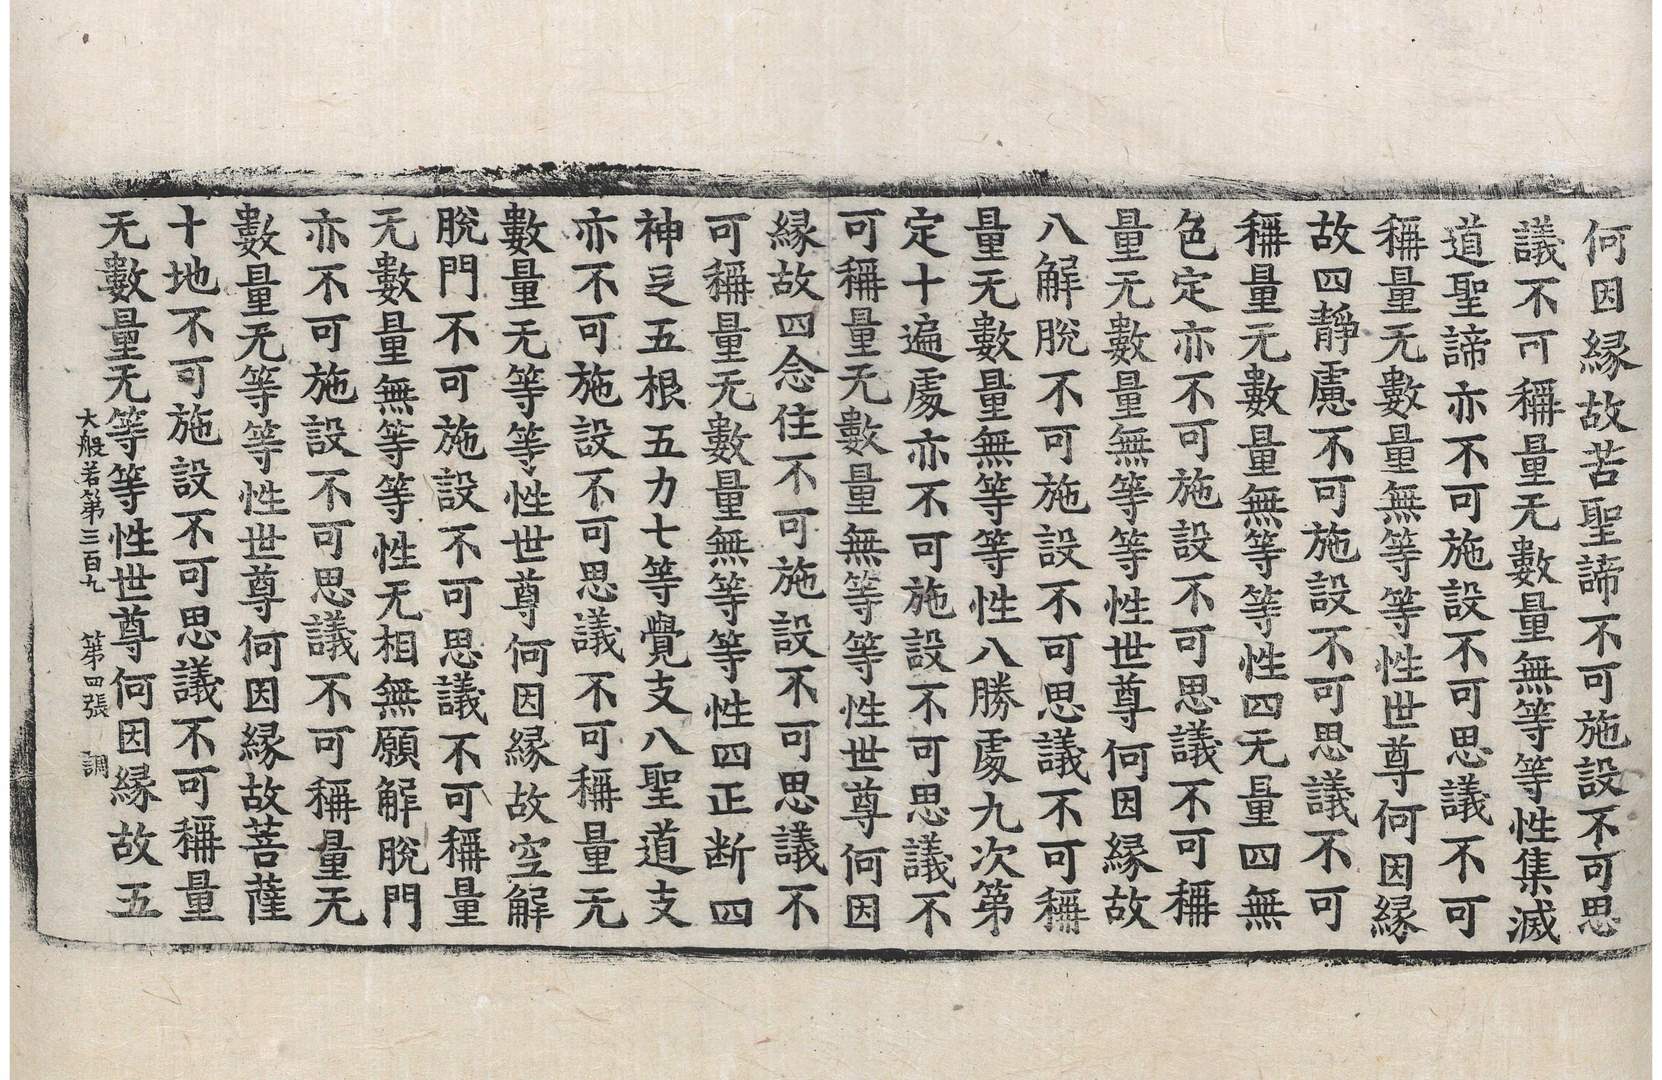 何因縁故苦聖諦不可施設不可思
議不可稱量无數量無等等性集滅
道聖諦亦不可施設不可思議不可
稱量无數量無等等性世尊何因縁
故四靜慮不可施設不可思議不可
稱量无數量無等等性四无量四無
色定亦不可施設不可思議不可稱
量无數量無等等性世尊何因縁故
八解脫不可施設不可思議不可稱
量无數量無等等性八勝處九次第
定十遍處亦不可施設不可思議不
可稱量无數量無等等性世尊何因
縁故四念住不可施設不可思議不
可稱量无數量無等等性四正断四
神足五根五力七等覺支八聖道支
亦不可施設不可思議不可稱量无
數量无等等性世尊何因縁故空解
脫門不可施設不可思議不可稱量
无數量無等等性无相無願解脫門
亦不可施設不可思議不可稱量无
數量无等等性世尊何因縁故菩薩
十地不可施設不可思議不可稱量
无數量无等等性世尊何因縁故五
大般若第三百九 第四張 調